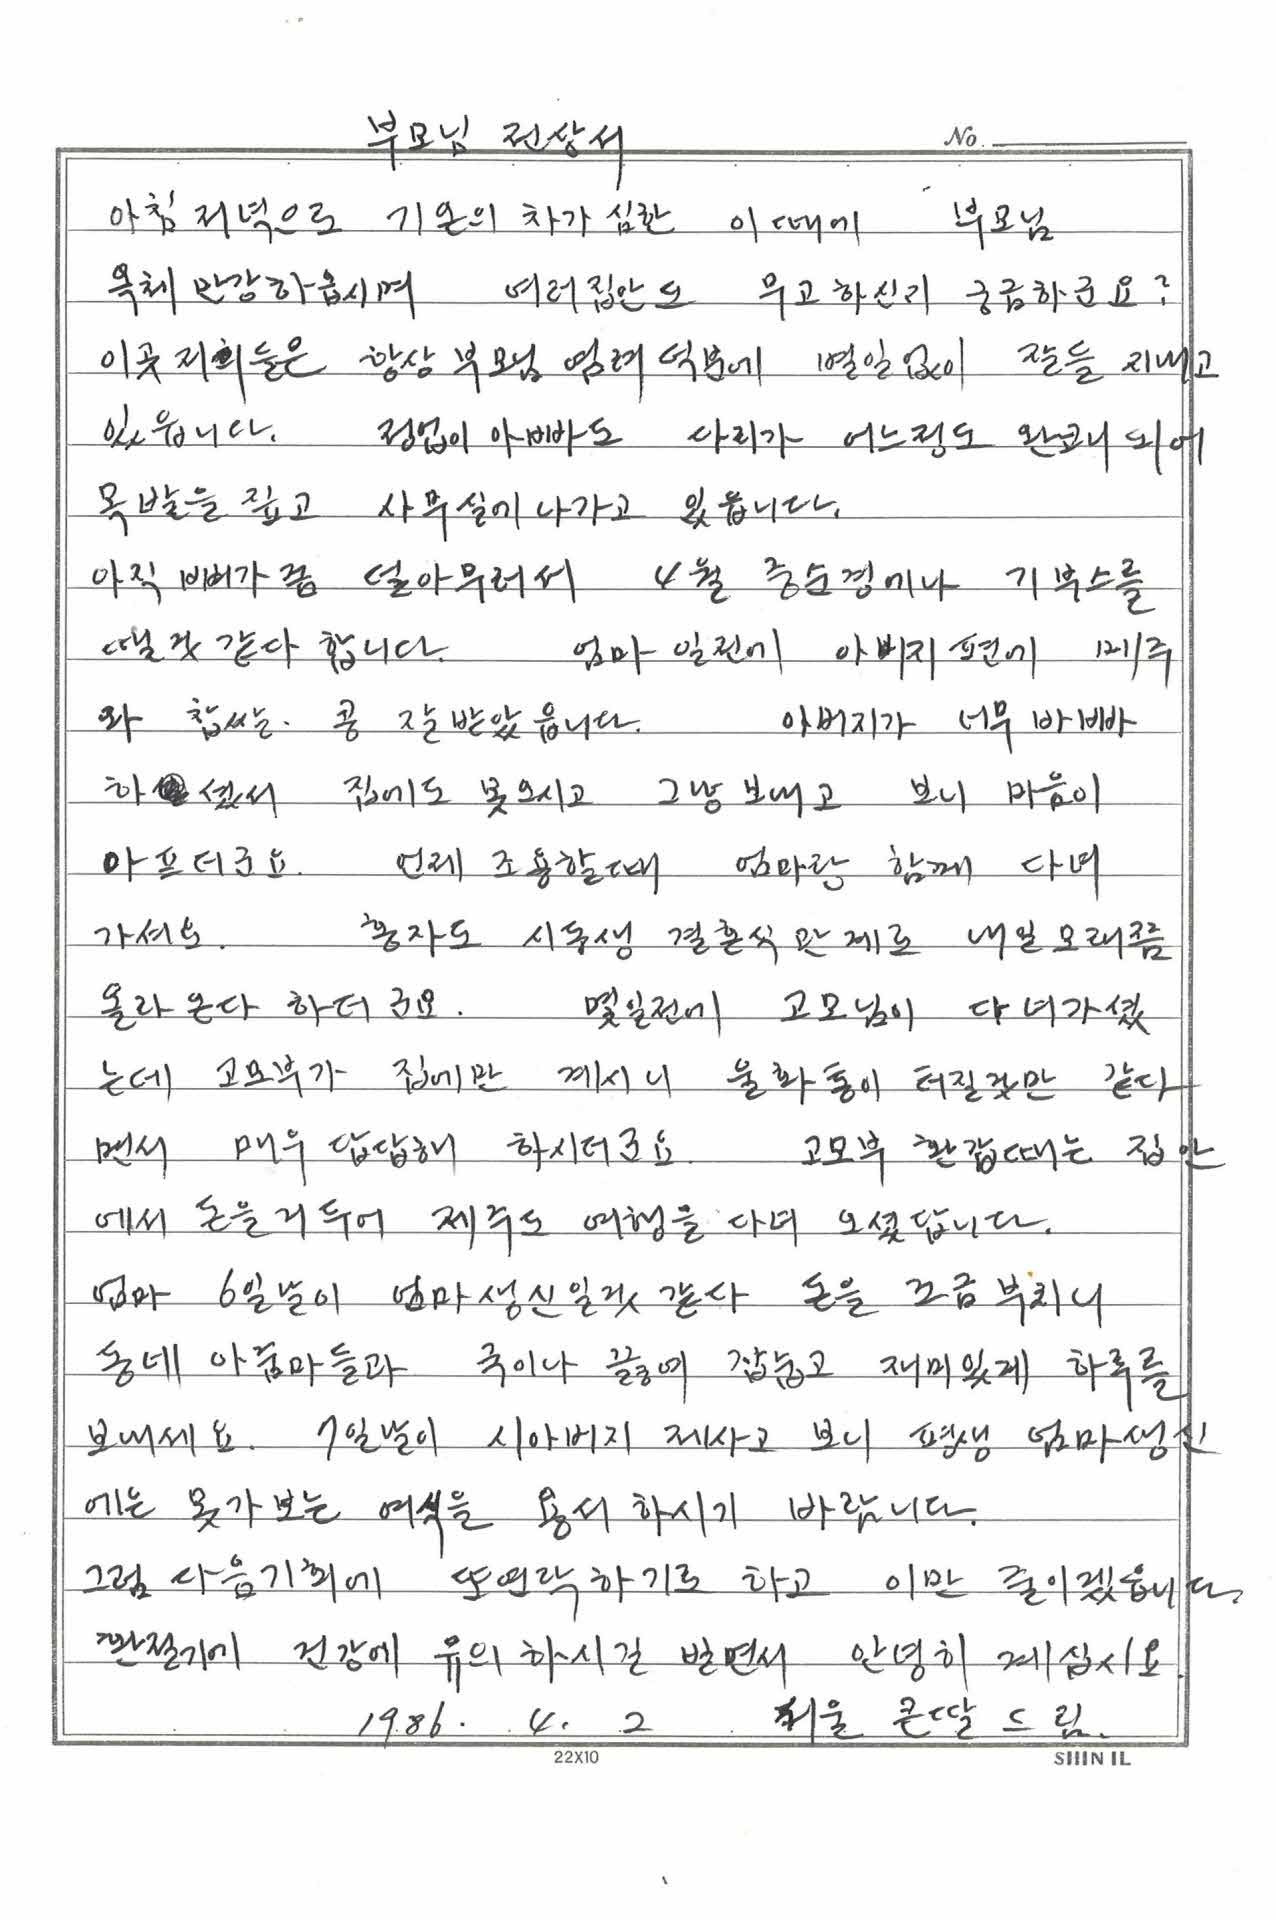 부모님 전상서
No.
아침 저녁으로 기온의 차가 심한 이때에 부모님
옥체 만강하옵시며 여러집안도 무고하신지 궁금하군요?
이곳 저희들은 항상 부모님 염려 덕분에 별일없이 잘들 지내고
있읍니다. 정업이 아빠도 다리가 어느정도 완쾌되어
목발을 짚고 사무실에 나가고 있읍니다.
아직 뼈가 좀 덜아무러서 4월 중순경에나 기부스를
뗄것 같다 합니다. 엄마 일전에 아버지 편에 메주
와 찹쌀. 콩 잘받았읍니다. 아버지가 너무 바빠
하셨서 집에도 못오시고 그냥 보내고 보니 마음이
아프더군요. 언제 조용할때 엄마랑 함께 다녀
가셔요. 흥자도 시동생 결혼식 관계로 내일모래쯤
올라 온다 하더군요. 몇일전에 고모님이 다녀가셨
는데 고모부가 집에만 계시니 울화통이 터질것만 같다
면서 매우 답답해 하시더군요. 고모부 환갑때는 집안
에서 돈을거두어 제주도 여행을 다녀 오셨답니다.
엄마 6일날이 엄마생신일것 같다 돈을 조금 부치니
동네 아줌마들과 국이나 끓여 잡숩고 재미있게 하루를
보내세요. 7일날이 시아버지 제사고 보니 평생 엄마생신
에는 못가보는 여식을 용서하시기 바랍니다.
그럼 다음기회에 또연락하기로 하고 이만 줄이겠읍니다.
환절기에 건강에 유의하시길 빌면서 안녕히 계십시요.
1986. 4. 2 서울 큰딸 드림.
22X10
SHIN IL